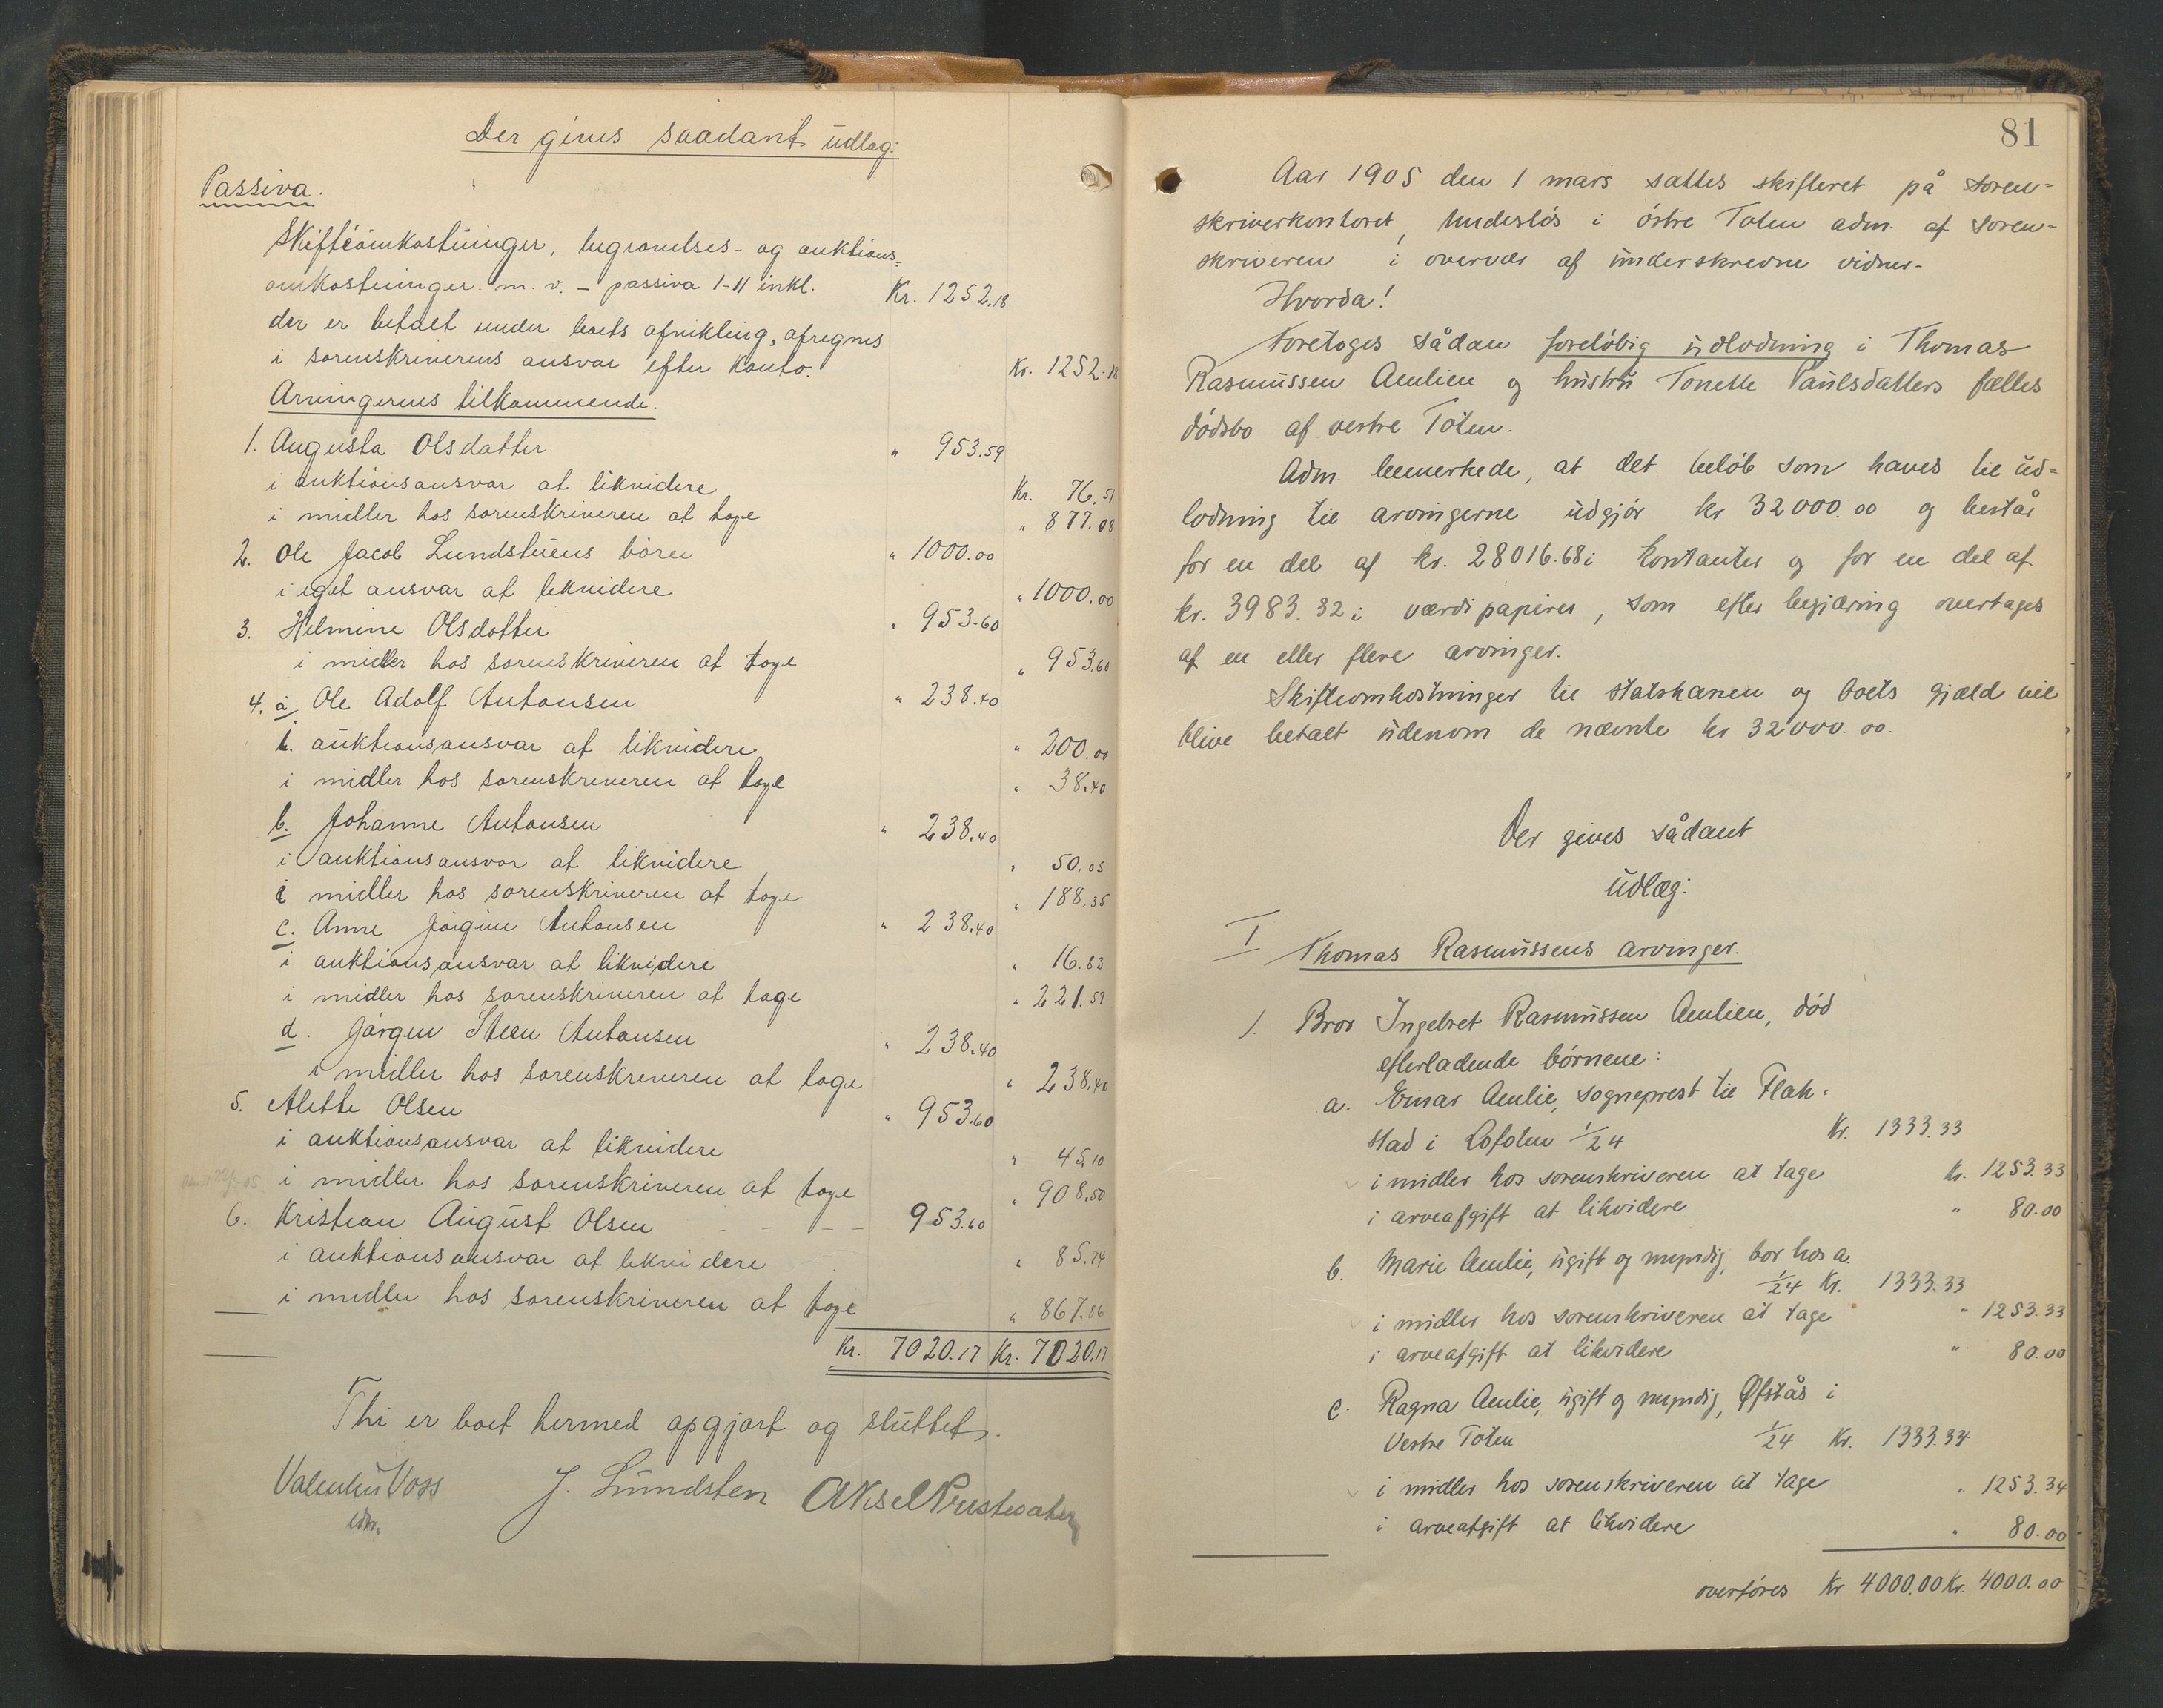 Der gives saadant udlæg:
Passiva.
Skifteomkostninger, begravelses- og auktions-
omkostninger m. v. - passiva 1-11 inkl. Kr. 1252.18
der er betalt under boets afvikling, afregnes
i sorenskriverens ansvar efter konto. Kr. 1252.18
Arvingernes tilkommende.
1. Augusta Olsdatter " 953.59
i auktionsansvar at likvidere Kr. 76.51
i midler hos sorenskriveren at tage " 877.08
2. Ole Jacob Lundstuens børn " 1000.00
i eget ansvar at likvidere " 1000.00
3. Helmine Olsdatter " 953.60
i midler hos sorenskriveren at tage " 953.60
4. a. Ole Adolf Antonsen " 238.40
i auktionsansvar at likvidere " 200.00
i midler hos sorenskriveren at tage " 38.40
b. Johanne Antonsen " 238.40
i auktionsansvar at likvidere " 50.05
i midler hos sorenskriveren at tage " 188.35
c. Anne Jørgine Antonsen " 238.40
i auktionsansvar at likvidere " 16.83
i midler hos sorenskriveren at tage " 221.57
d. Jørgen Steen Antonsen " 238.40
i midler hos sorenskriveren at tage " 238.40
5. Alette Olsen " 953.60
i auktionsansvar at likvidere " 45.10
i midler hos sorenskriveren at tage " 908.50
6. Kristian August Olsen - - - 953.60
i auktionsansvar at likvidere " 85.74
i midler hos sorenskriveren at tage " 867.86
Kr. 7020.17 Kr. 7020.17
Thi er boet hermed opgjort og sluttet.
Valentin Voss J. Lundsten Aksel
81
Aar 1905 den 1 mars sattes skifteret på soren-
skriverkontoret, Underslós i østre Toten adm. af soren-
skriveren i overvær af underskrevne vidner.
Hvorda!
Foretoges sådan foreløbig udlodning i Thomas
Rasmussen Aulien og hustru Tonette Paulsdatters fælles
dødsbo af vestre Toten.
Adm. bemerkede, at det beløb som haves til ud-
lodning til arvingerne udgjør kr 32000.00 og består
for en del af kr. 28016.68 i kontanter og for en del af
kr. 3983.32 i værdipapirer, som efter begjæring overtages
af en eller flere arvinger.
Skifteomkostninger til statskassen og boets gjæld vil
blive betalt udenom de nævnte kr 32000.00.
Der gives sådant
udlæg:
I Thomas Rasmussens arvinger.
1. Bror Ingebret Rasmussen Aulien, død
efterladende børnene:
a. Einar Aulie, sogneprest til Flak-
stad i Lofoten 1/24 Kr. 1333.33
i midler hos sorenskriveren at tage Kr. 1253.33
i arveafgift at likvidere " 80.00
b. Marie Aulie, ugift og myndig, bor hos a.
1/24 Kr. 1333.33
i midler hos sorenskriveren at tage " 1253.33
i arveafgift at likvidere " 80.00
c. Ragna Aulie, ugift og myndig, Øfstås i
Vestre Toten 1/24 Kr. 1333.34
i midler hos sorenskriveren at tage " 1253.34
i arveafgift at likvidere " 80.00
overføres Kr 4000.00 Kr. 4000.00